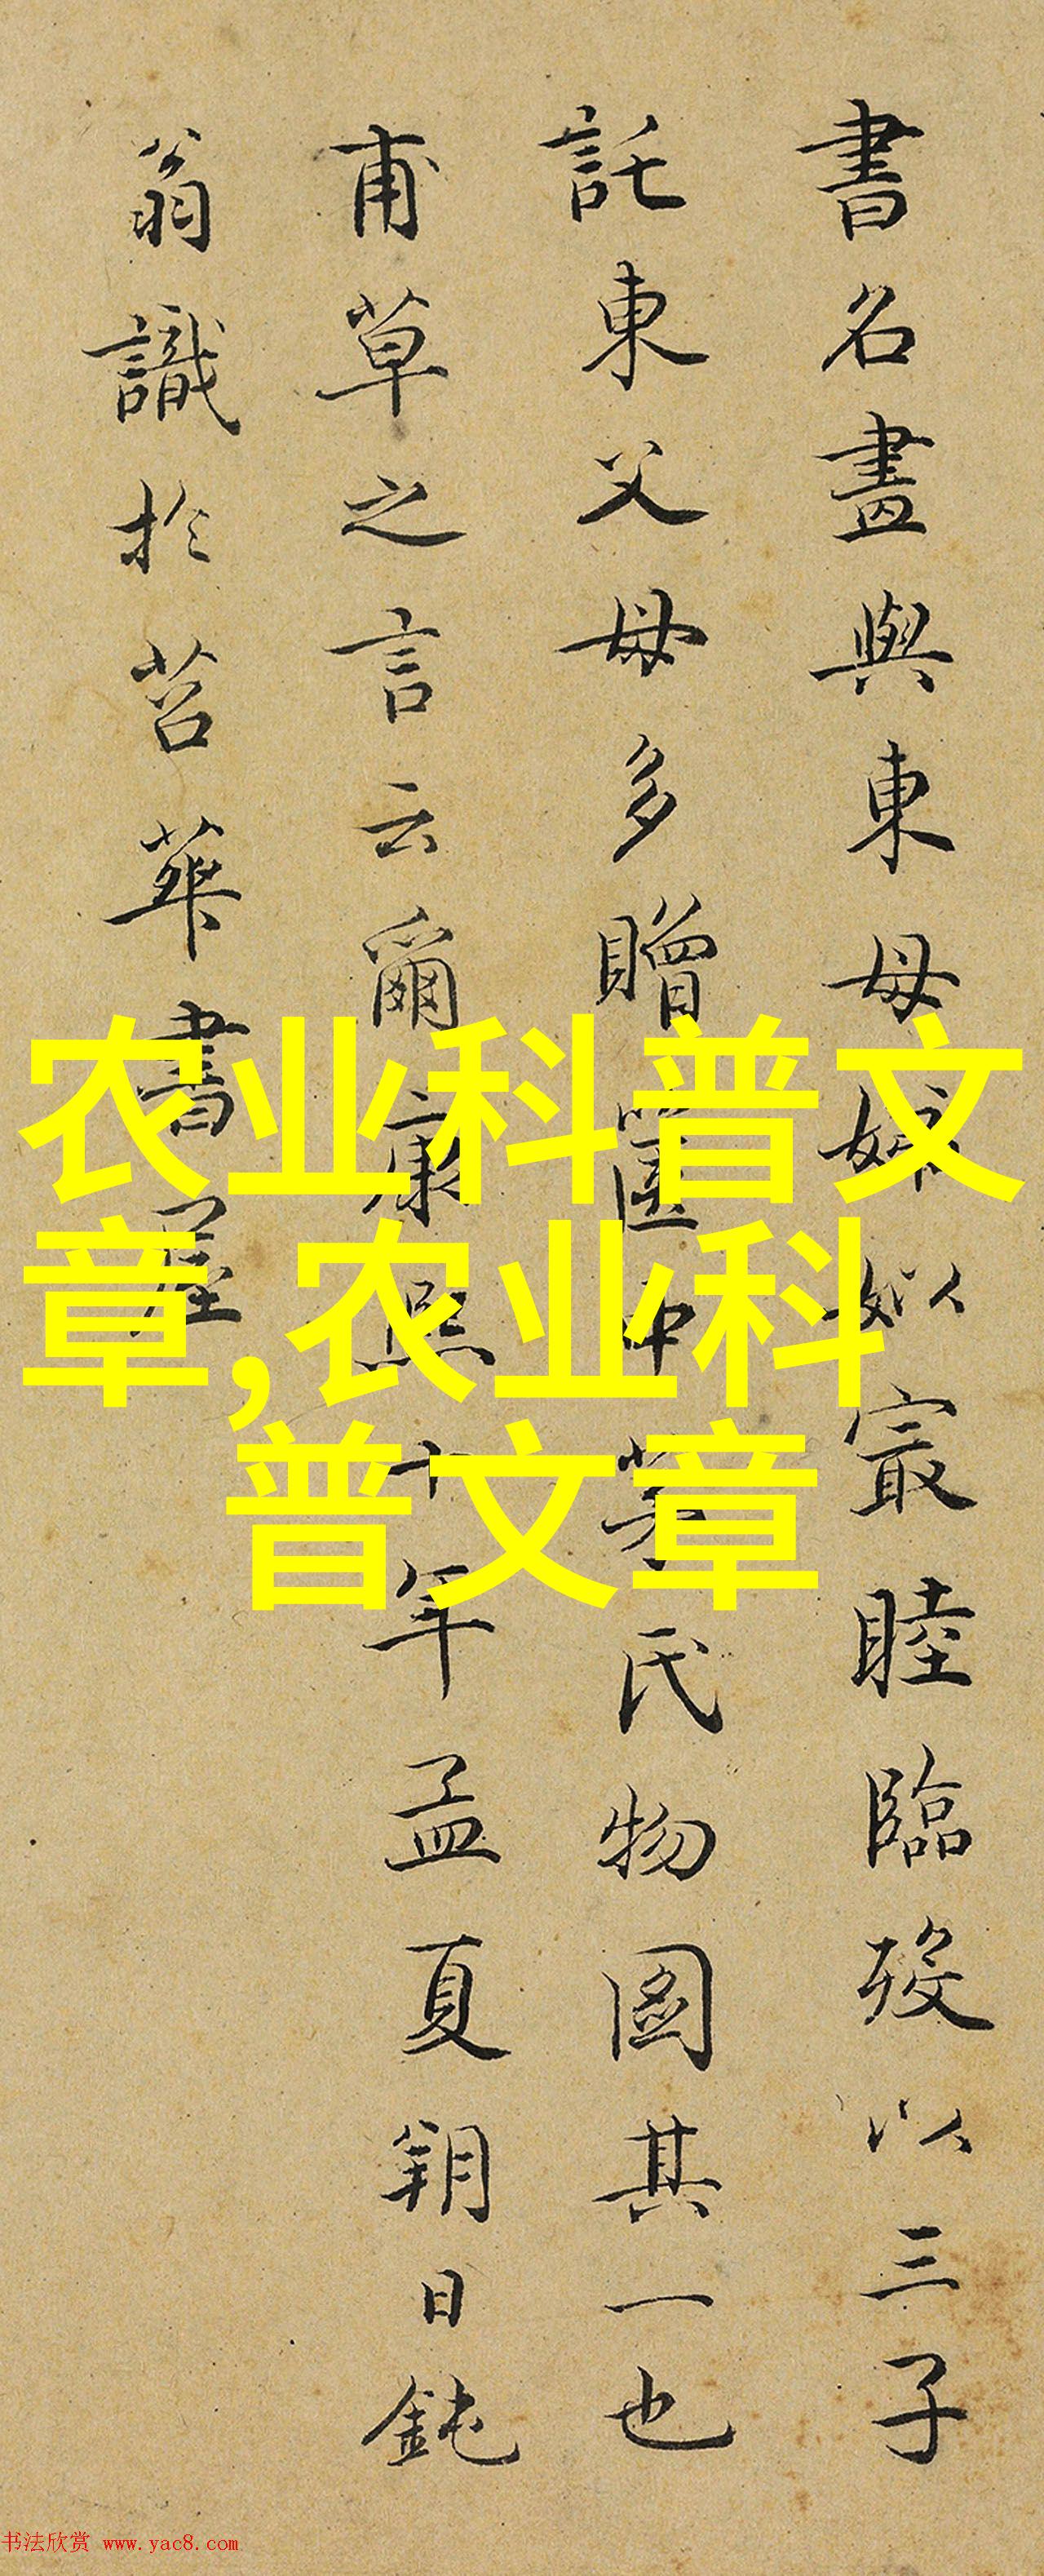 書名畫與東母姊姒最睦臨歿以三子
託東父母多贈匳中芳氏物圖其一也
甫草之言云爾康熙十年孟夏朔日鈍
翁識於苕華書屋
农业科普文
章,农业科
普文章
书法欣赏 www.yac8.com